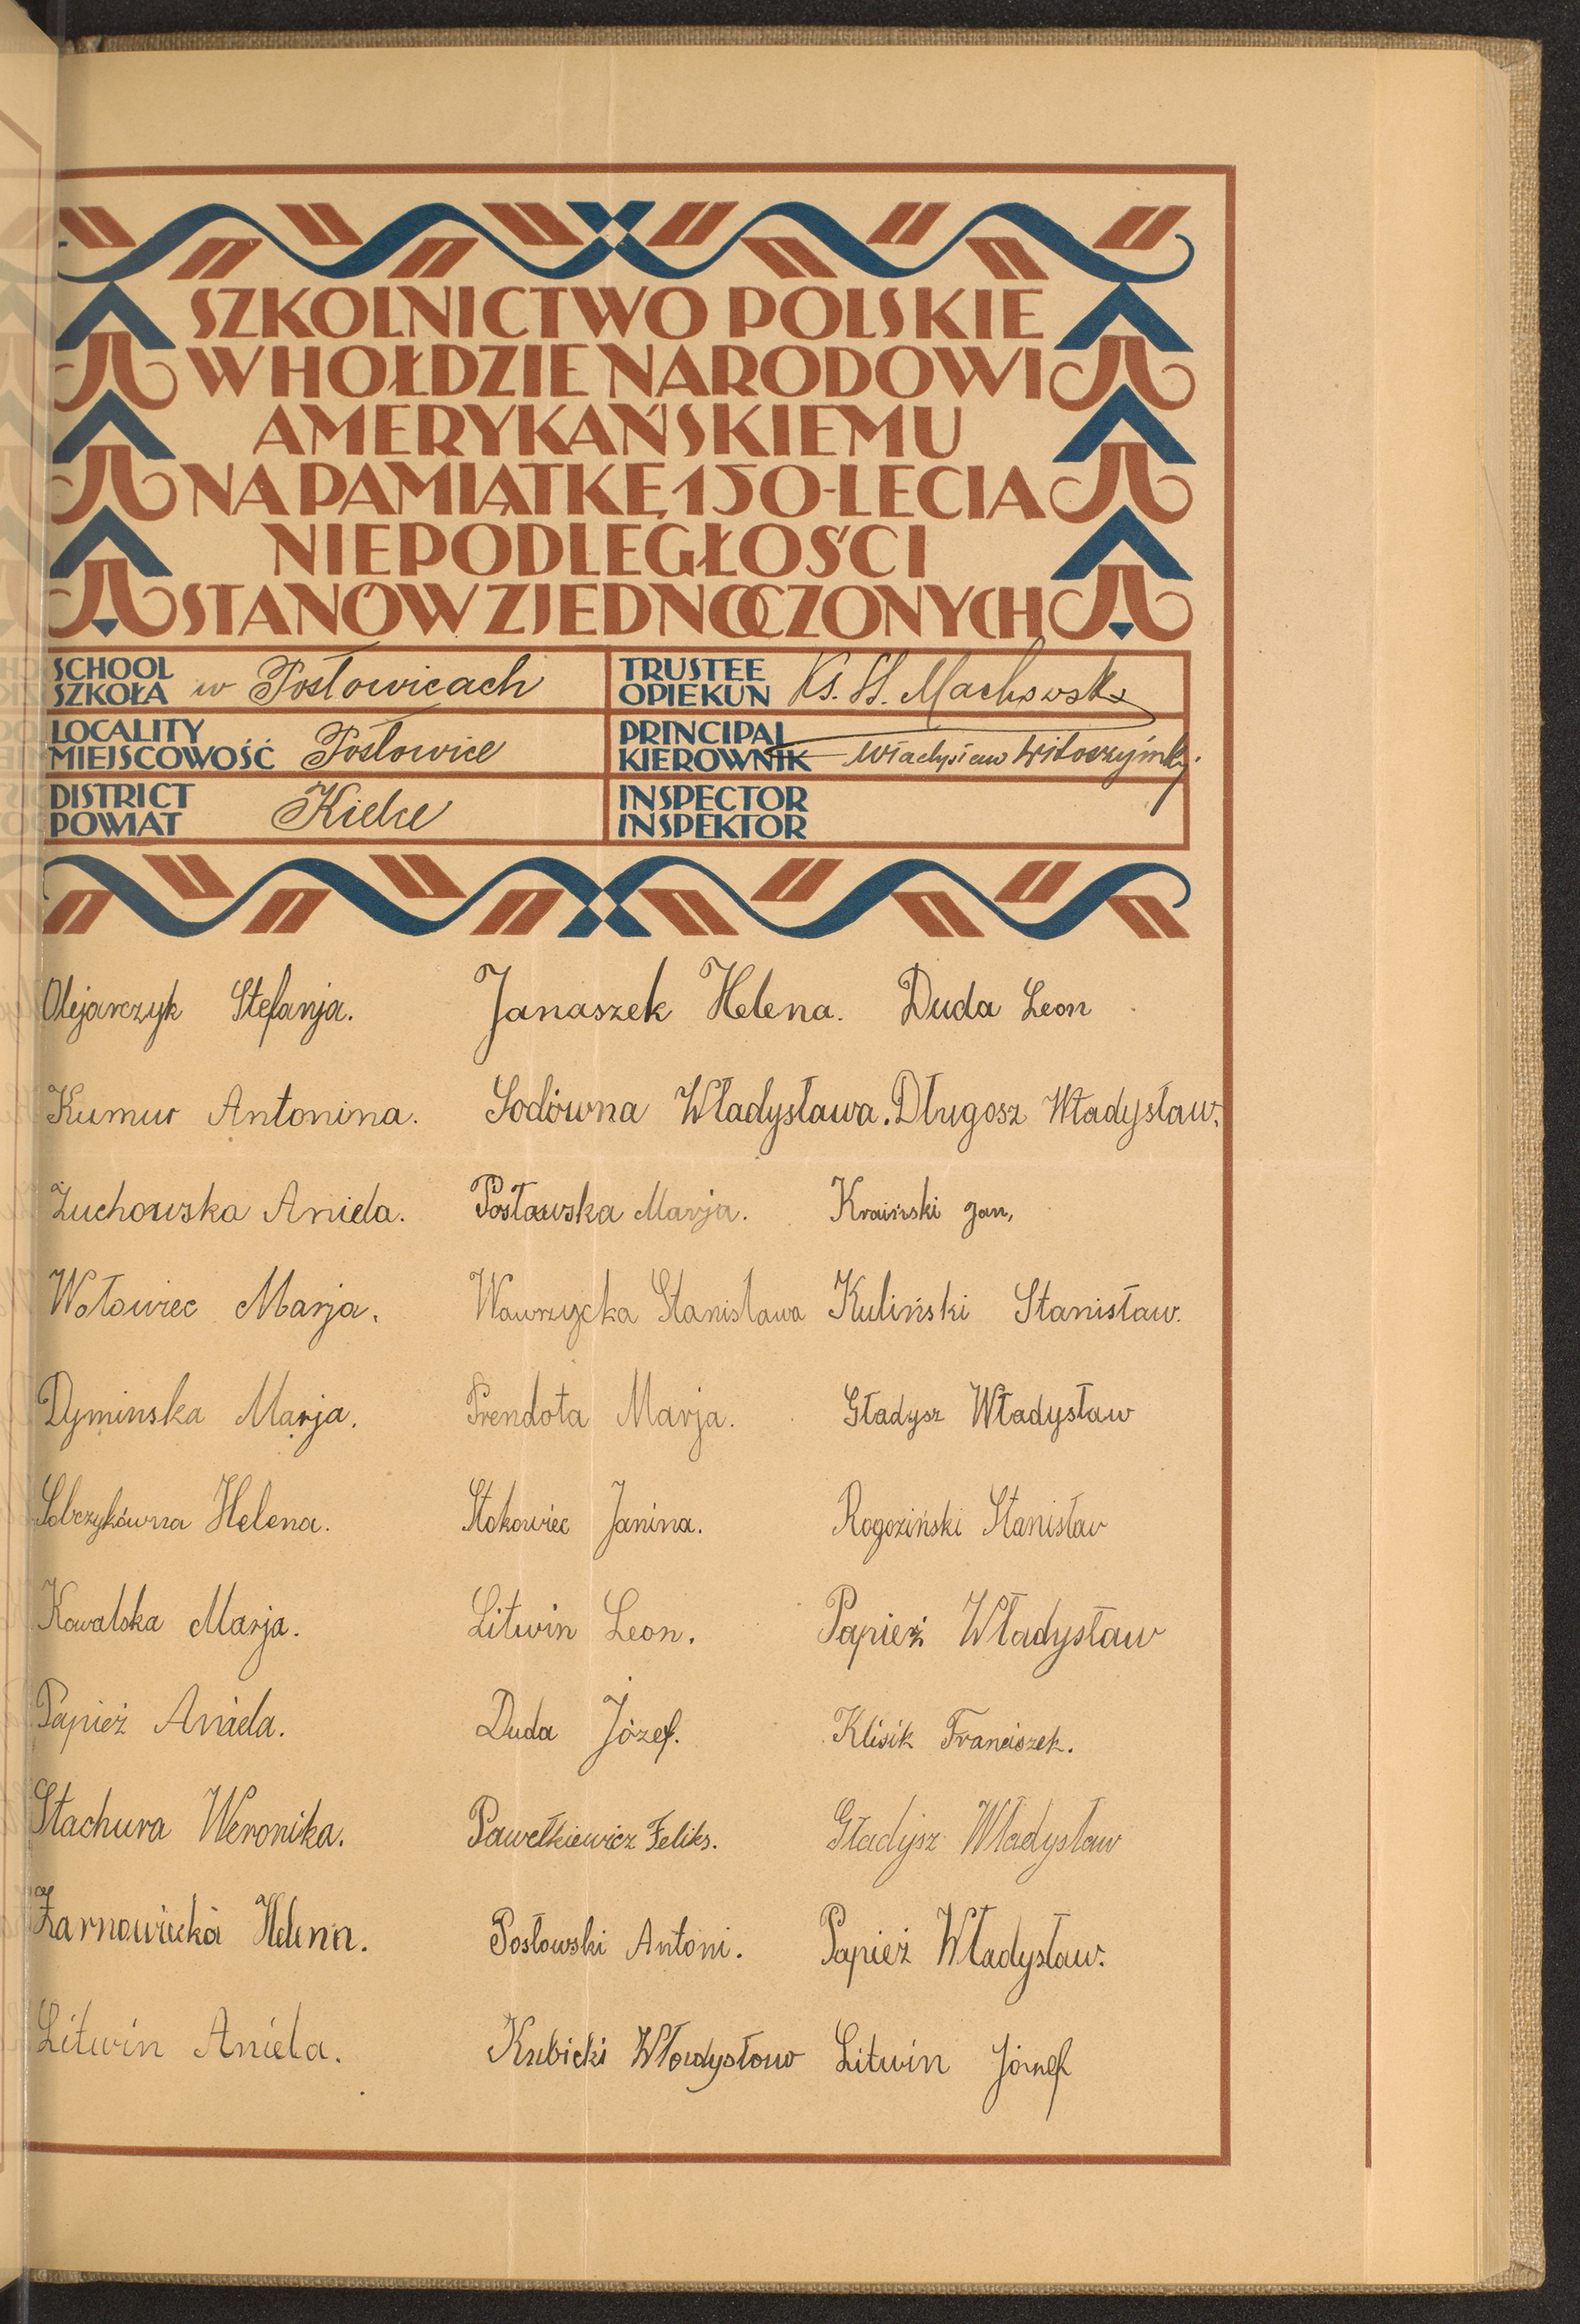 SZKOLNICTWO POLSKIE
W HOŁDZIE NARODOWI
AMERYKAŃSKIEMU
NA PAMIĄTKĘ 150-LECIA
NIEPODLEGŁOŚCI
STANÓW ZJEDNOCZONYCH
SCHOOL
SZKOŁA w Posłowicach
TRUSTEE
OPIEKUN Ks. St. Machowski
LOCALITY
MIEJSCOWOŚĆ Posłowice
PRINCIPAL
KIEROWNIK Władysław
DISTRICT
POWIAT Kielce
INSPECTOR
INSPEKTOR
Olejarczyk Stefanja. Janaszek Helena. Duda Leon
Kumur Antonina. Sodówna Władysława. Długosz Władysław.
Żuchowska Aniela. Posławska Marja. Kraiński Jan,
Wołowiec Marja. Wawrzycka Stanisława Kuliński Stanisław.
Dyminska Marja. Prendota Marja. Gładysz Władysław
Sobczykówna Helena. Stokowiec Janina. Rogoziński Stanisław
Kowalska Marja. Litwin Leon. Papież Władysław
Papież Aniela. Duda Józef. Klisik Franciszek.
Stachura Weronika. Pawełkiewicz Feliks. Gładysz Władysław
Żarnowiecka Helena. Posłowski Antoni. Papież Władysław.
Litwin Aniela. Kubicki Władysław Litwin Józef